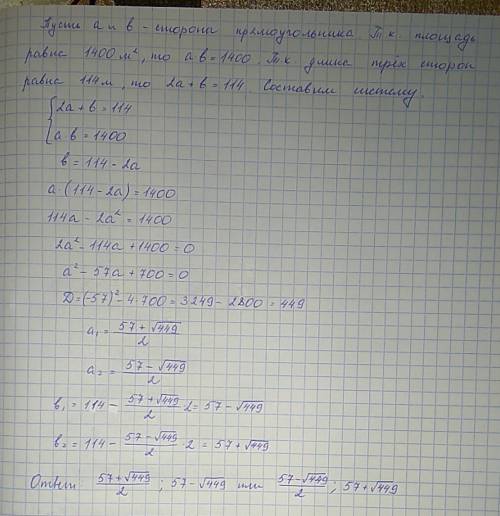 Пусть a и в - сторона прямоугольника Т.к. площадь
равна 1400 м², то a в = 1400. Т.к длина трёх сторон
равна 114 м, то 2a + в = 114. Составим систему.
{2a + в = 114
a в = 1400
в = 114 - 2a
a · (114 - 2a) = 1400
114a - 2a² = 1400
2a² - 114a + 1400 = 0
a² - 57a + 700 = 0
D = (-57)² - 4 · 700 = 3249 - 2800 = 449
a₁ = (57 + √449)/2
a₂ = (57 - √449)/2
в₁ = 114 - (57 + √449)/2 · 2 = 57 - √449
в₂ = 114 - (57 - √449)/2 · 2 = 57 + √449
Ответ (57 + √449)/2 ; 57 - √449 или (57 - √449)/2 ; 57 + √449